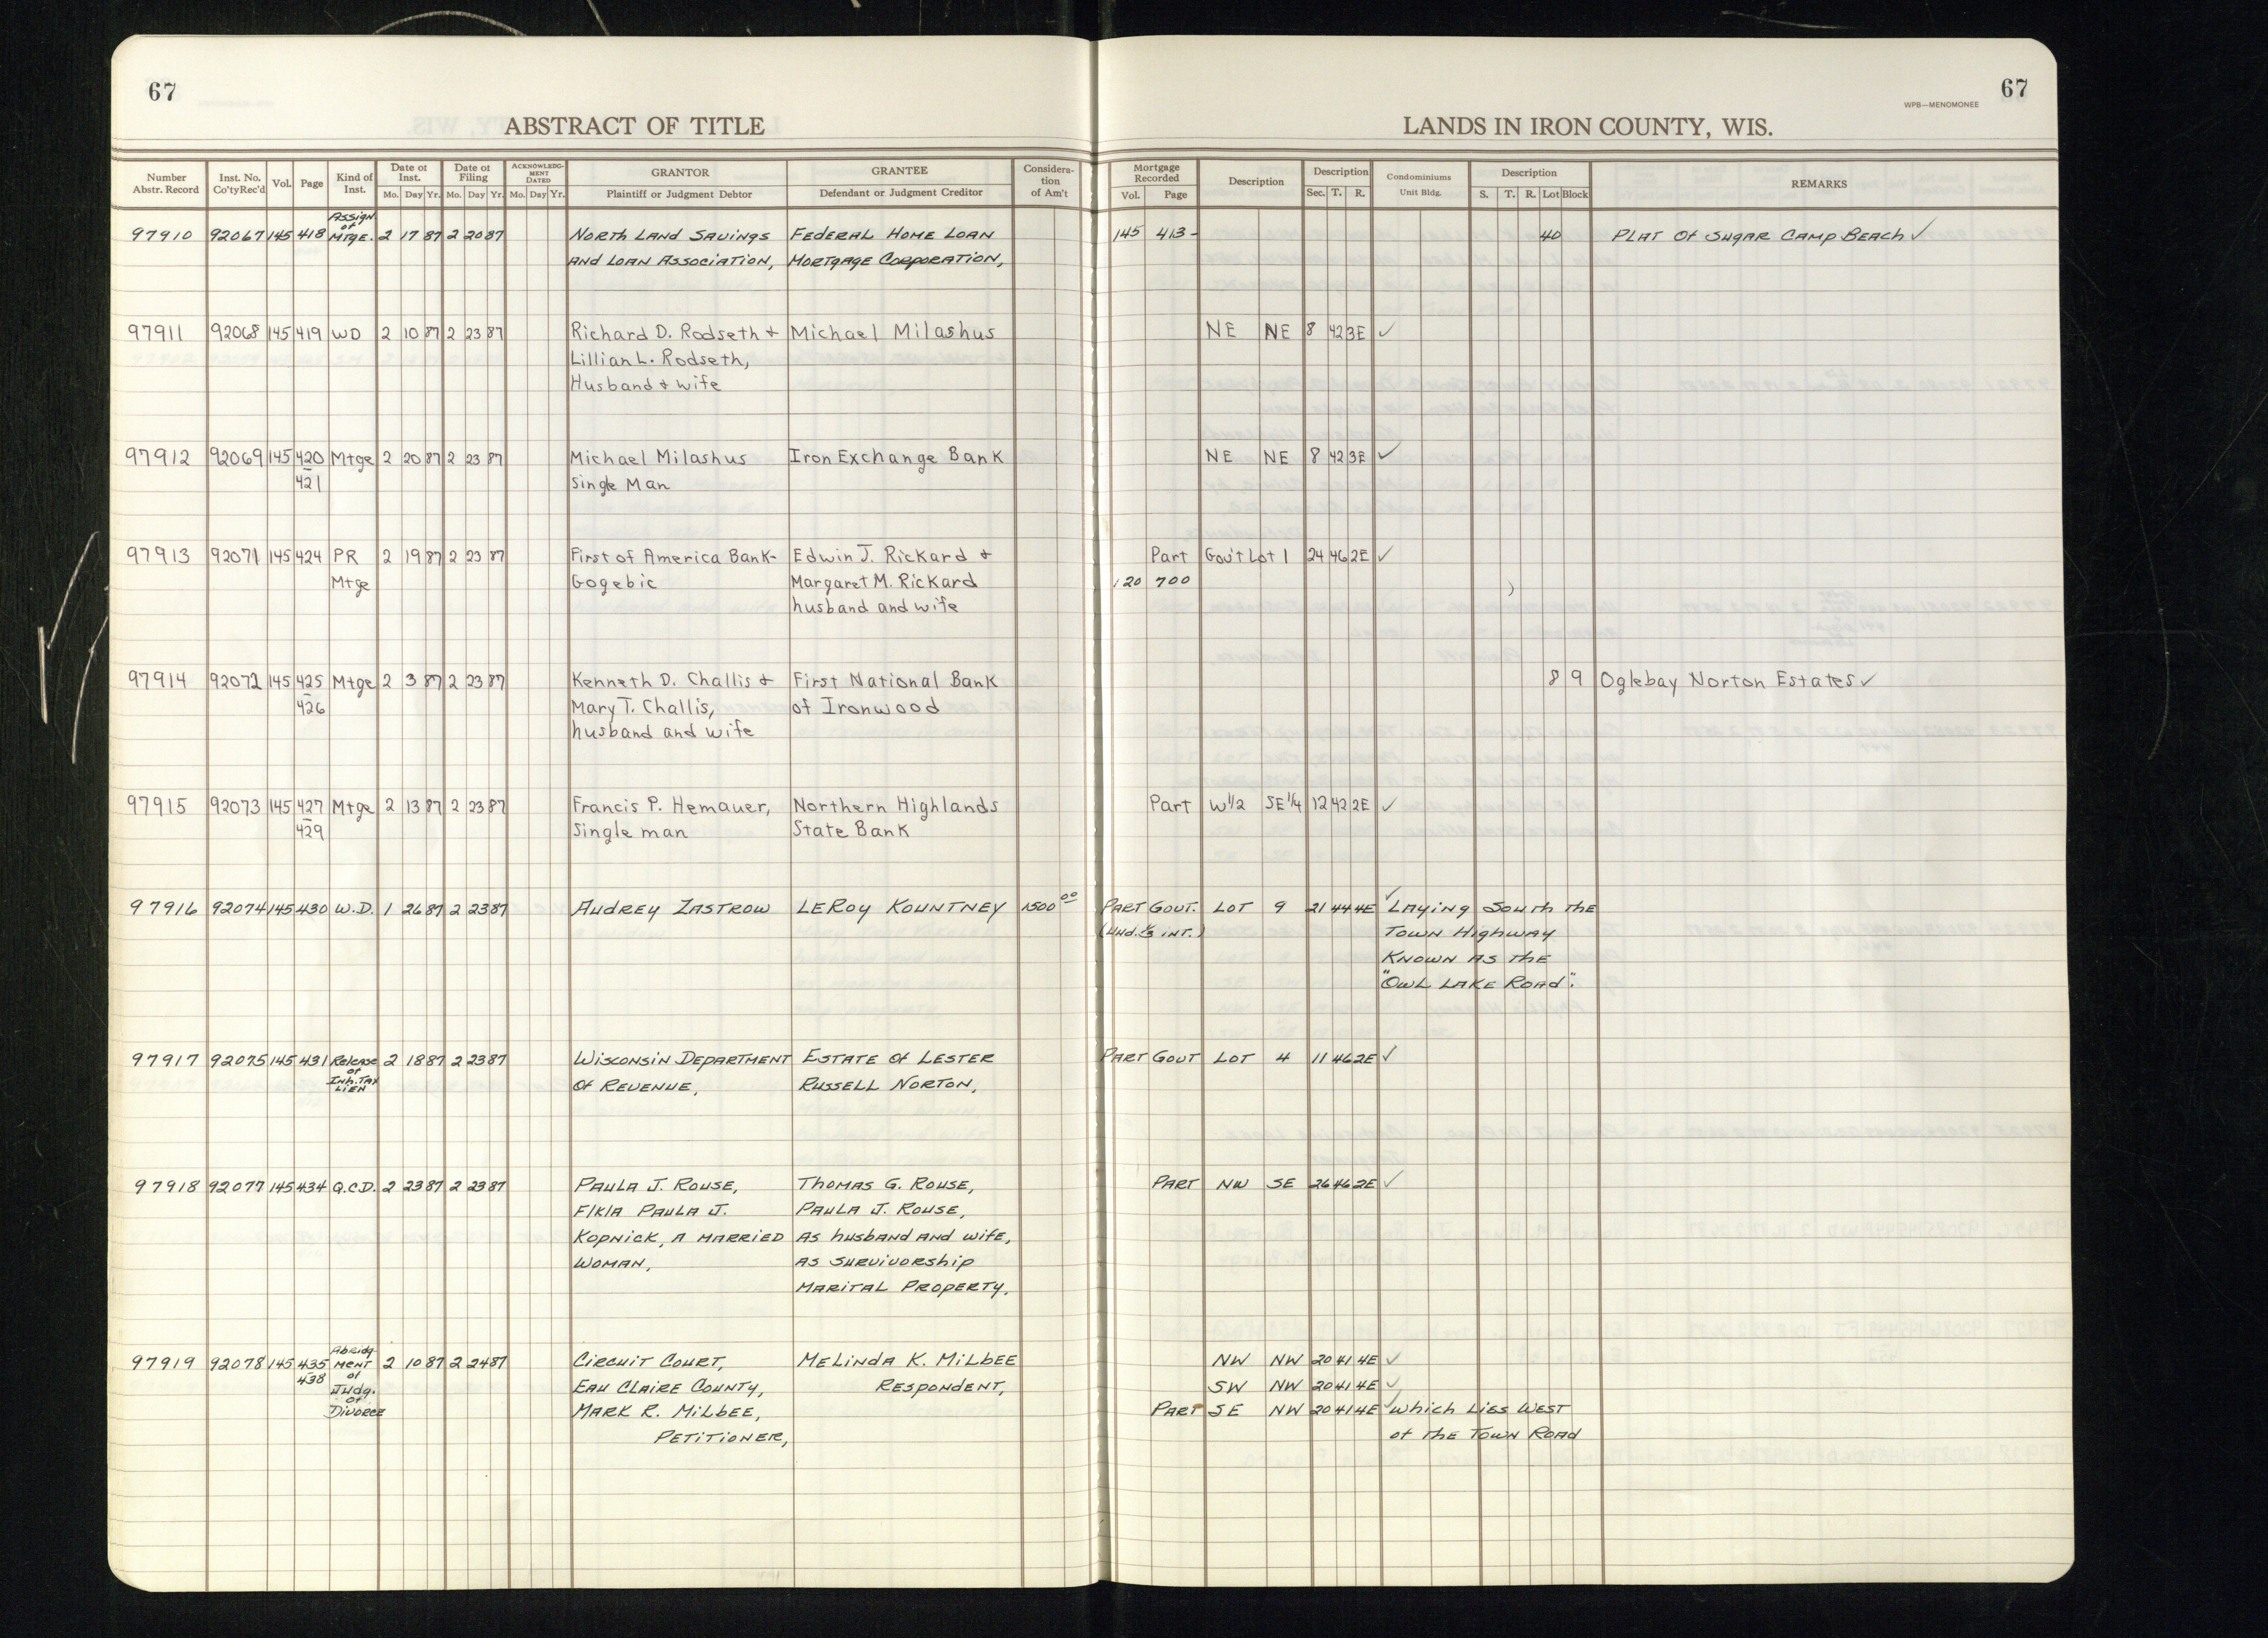 67
67
WPB—MENOMONEE
ABSTRACT OF TITLE
LANDS IN IRON COUNTY, WIS.
Number Abstr. Record | Inst. No. Co'tyRec'd | Vol. | Page | Kind of Inst. | Date of Inst. Mo. Day Yr. | Date of Filing Mo. Day Yr. | ACKNOWLEDGMENT DATED Mo. Day Yr. | GRANTOR Plaintiff or Judgment Debtor | GRANTEE Defendant or Judgment Creditor | Consideration of Am't | Mortgage Recorded Vol. Page | Description | Description Sec. T. R. | Condominiums Unit Bldg. | Description S. T. R. Lot Block | REMARKS
97910 92067 145 418 Assign of MTGE. 2 17 87 2 20 87 North Land Savings Federal Home Loan 145 413- 40 Plat of Sugar Camp Beach ✓
and Loan Association, Mortgage Corporation,
97911 92068 145 419 WD 2 10 87 2 23 87 Richard D. Rodseth + Michael Milashus NE NE 8 42 3E ✓
Lillian L. Rodseth,
Husband + wife
97912 92069 145 420 Mtge 2 20 87 2 23 87 Michael Milashus Iron Exchange Bank NE NE 8 42 3E ✓
421 Single Man
97913 92071 145 424 PR 2 19 87 2 23 87 First of America Bank- Edwin J. Rickard + Part Gov't Lot 1 24 46 2E ✓
Mtge Gogebic Margaret M. Rickard 120 700
husband and wife
97914 92072 145 425 Mtge 2 3 87 2 23 87 Kenneth D. Challis + First National Bank 8 9 Oglebay Norton Estates ✓
426 Mary T. Challis, of Ironwood
husband and wife
97915 92073 145 427 Mtge 2 13 87 2 23 87 Francis P. Hemauer, Northern Highlands Part W1/2 SE1/4 12 42 2E ✓
429 Single man State Bank
97916 92074 145 430 W.D. 1 26 87 2 23 87 Audrey Zastrow LeRoy Kountney 1500 00 Part Gout. Lot 9 21 44 4E ✓ Laying South the
(und. 1/3 int.) Town Highway
Known as the
"Owl Lake Road".
97917 92075 145 431 Release 2 18 87 2 23 87 Wisconsin Department Estate of Lester Part Gout Lot 4 11 46 2E ✓
of Inh. Tax Lien of Revenue, Russell Norton,
97918 92077 145 434 Q.C.D. 2 23 87 2 23 87 Paula J. Rouse, Thomas G. Rouse, Part NW SE 26 46 2E ✓
F/K/A Paula J. Paula J. Rouse,
Kopnick, a married as husband and wife,
woman, as survivorship
marital property.
97919 92078 145 435 Abridgment 2 10 87 2 24 87 Circuit Court, Melinda K. Milbee NW NW 20 41 4E ✓
438 of Judg. Eau Claire County, Respondent, SW NW 20 41 4E ✓
of Divorce Mark R. Milbee, Part SE NW 20 41 4E ✓ which lies West
Petitioner, of the Town Road